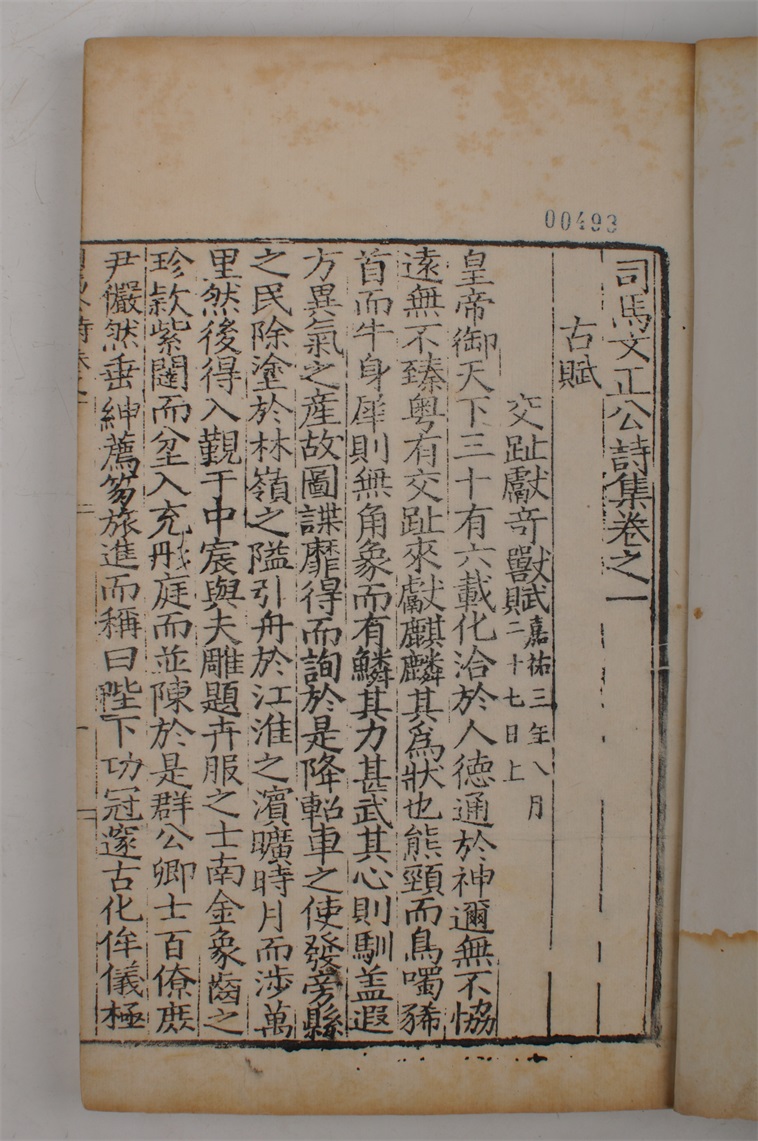 00493
司馬文正公詩集卷之一
古賦
交趾獻竒獸賦嘉祐三年八月
二十七日上
皇帝御天下三十有六載化洽於人德通於神邇無不恊
遠無不臻粤有交趾來獻麒麟其爲狀也熊頸而鳥噣豨
首而牛身犀則無角象而有鱗其力甚武其心則馴盖遐
方異氣之産故圖諜靡得而詢於是降軺車之使發旁縣
之民除塗於林嶺之隘引舟於江淮之濱曠時月而涉萬
里然後得入覲于中宸與夫雕題卉服之士南金象齒之
珍欵紫闥而坌入充彤庭而並陳於是群公卿士百僚庶
尹儼然垂紳薦笏旅進而稱曰陛下功冠邃古化侔儀極